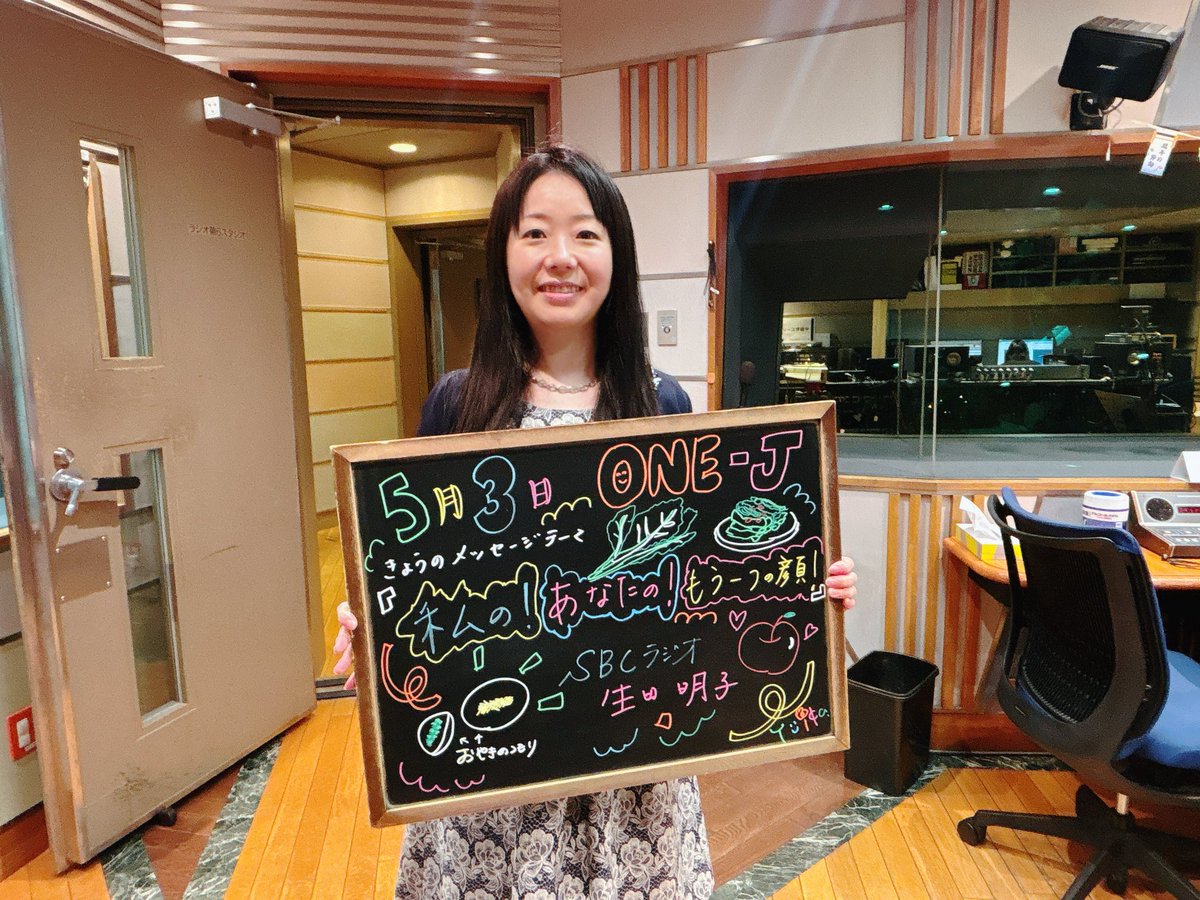 BOSE
ラジオ第6スタジオ
5月3日 ONE-J
きょうのメッセージテーマ
『私の!あなたの!もう一つの顔!』
SBCラジオ
生田 明子
おやきのつもり